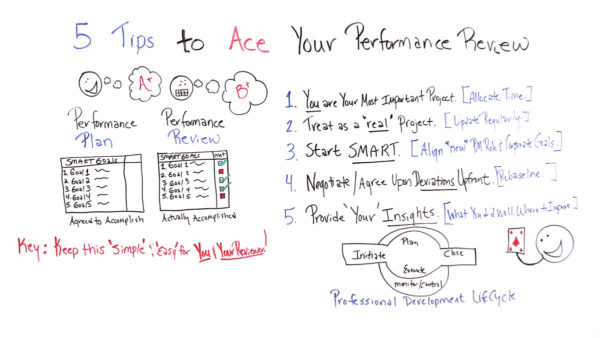 5 Tips to Ace Your Performance Review
A+
B+
Performance
Plan
SMART GOALS
1. Goal 1
2. Goal 2
3. Goal 3
4. Goal 4
5. Goal 5
Agreed to Accomplish
Performance
Review
SMART GOALS met
1. Goal 1
2. Goal 2
3. Goal 3
4. Goal 4
5. Goal 5
Actually Accomplished
Key: Keep this "Simple" & "Easy" for You & Your Reviewer!
1. You are Your Most Important Project. [Allocate Time.]
2. Treat as a "real" Project. [Update Regularly.]
3. Start SMART. [Align "new" PM Role & Corporate Goals]
4. Negotiate/Agree Upon Deviations Upfront. [Rebaseline]
5. Provide "Your" Insights. [What You did Well, Where to Improve]
Plan
Initiate
Close
Execute
monitor/control
Professional Development Lifecycle